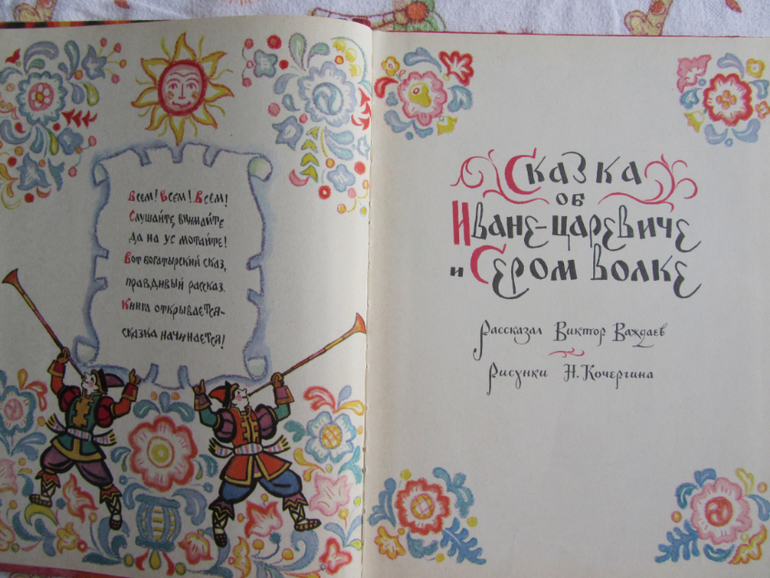 Всем! Всем! Всем!
Слушайте, внимайте
Да на ус мотайте!
Вот богатырский сказ,
правдивый рассказ.
Книга открывается-
сказка начинается!
Сказка
об
Иване-царевиче
и Сером волке
Рассказал Виктор Важдаев
Рисунки Н. Кочергина